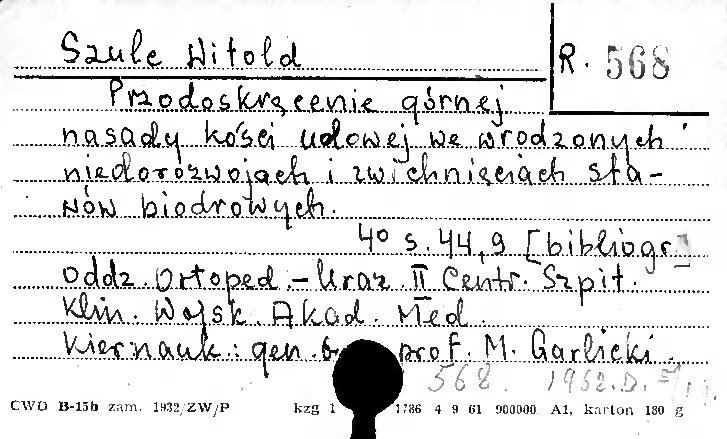 Szulc Witold
R. 568
Przodoskręcenie górnej
nasady kości udowej we wrodzonych
niedorozwojach i zwichnięciach sta-
wów biodrowych.
4° s. 44, 9 [bibliogr.]
Oddz. Ortoped. - Uraz. II Centr. Szpit.
Klin. Wojsk. Akad. Med.
Kier. nauk: gen. prof. M. Garlicki.
568 1962.D.
CWD B-15b zam. 1932/ZW/P kzg 1 1786 4 9 61 900000 A1, karton 180 g